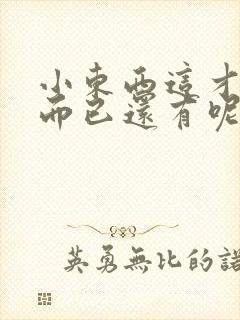 小東西這才
而已還有呢
英勇無比的諾